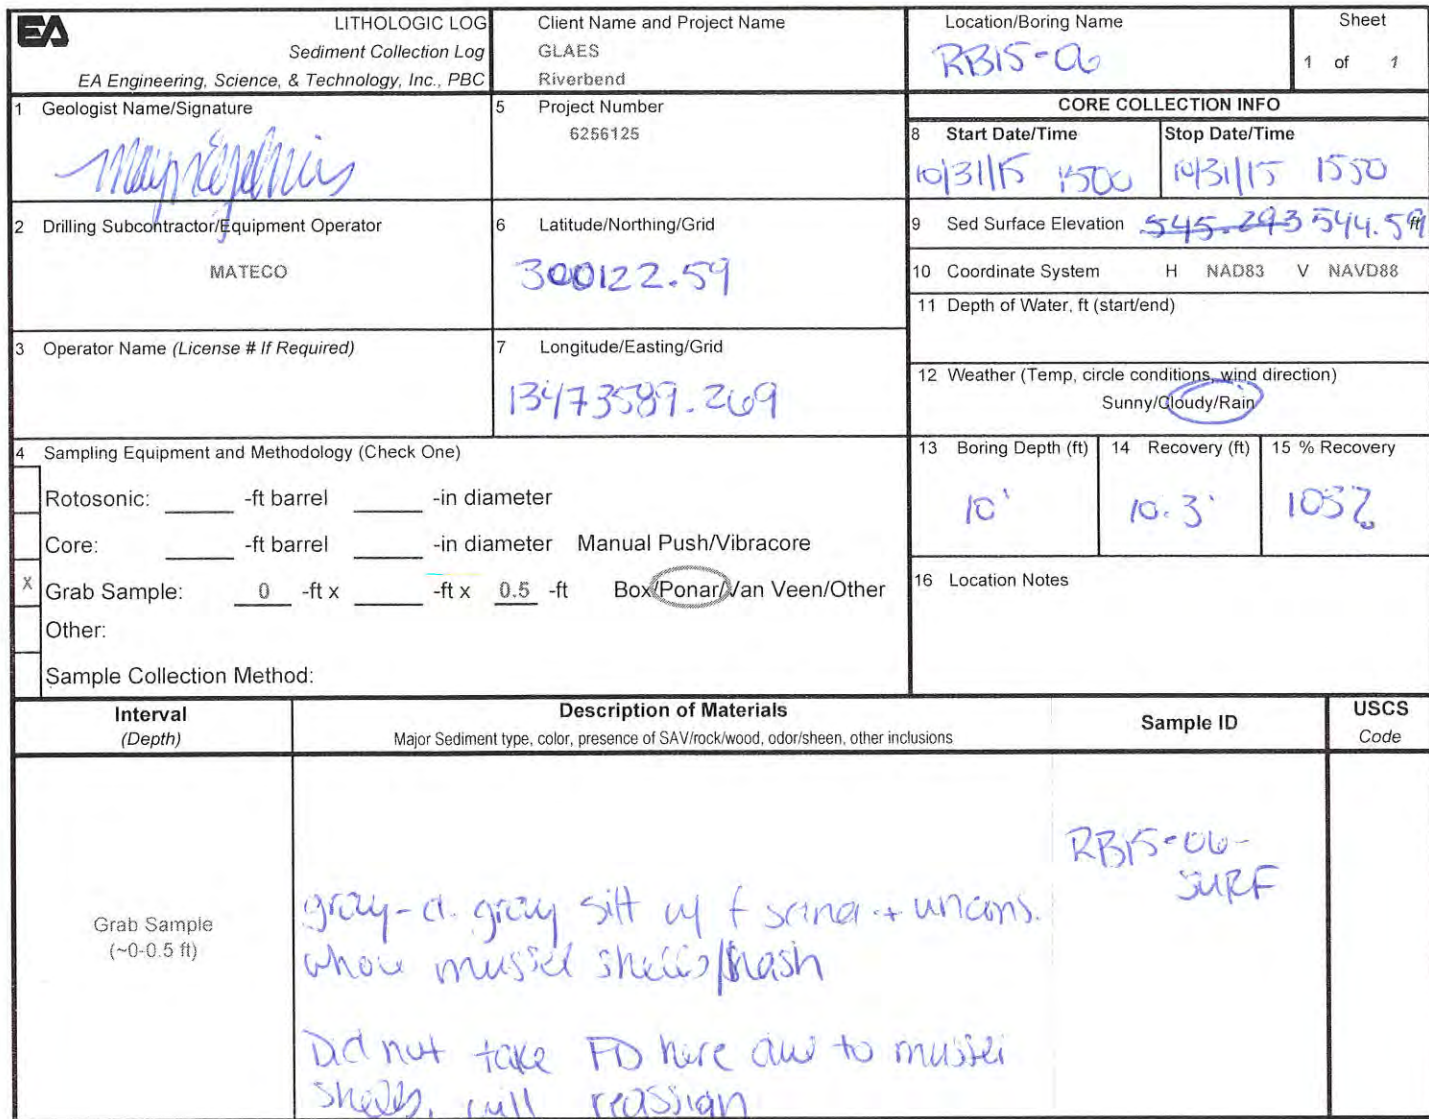 EA
LITHOLOGIC LOG
Sediment Collection Log
EA Engineering, Science, & Technology, Inc., PBC
Client Name and Project Name
GLAES
Riverbend
Location/Boring Name
RB15-06
Sheet
1 of 1
1 Geologist Name/Signature
5 Project Number
6256125
CORE COLLECTION INFO
8 Start Date/Time
10/31/15 1500
Stop Date/Time
10/31/15 1550
2 Drilling Subcontractor/Equipment Operator
MATECO
6 Latitude/Northing/Grid
300122.59
9 Sed Surface Elevation 545.293 544.59 ft
10 Coordinate System H NAD83 V NAVD88
11 Depth of Water, ft (start/end)
3 Operator Name (License # If Required)
7 Longitude/Easting/Grid
13473589.269
12 Weather (Temp, circle conditions, wind direction)
Sunny/Cloudy/Rain
4 Sampling Equipment and Methodology (Check One)
Rotosonic: -ft barrel -in diameter
Core: -ft barrel -in diameter Manual Push/Vibracore
X Grab Sample: 0 -ft x -ft x 0.5 -ft Box/Ponar/Van Veen/Other
Other:
Sample Collection Method:
13 Boring Depth (ft)
10'
14 Recovery (ft)
10.3'
15 % Recovery
103%
16 Location Notes
Interval
(Depth)
Description of Materials
Major Sediment type, color, presence of SAV/rock/wood, odor/sheen, other inclusions
Sample ID
USCS
Code
Grab Sample
(~0-0.5 ft)
gray-d. gray silt w/ f sand + uncons.
whole mussel shells/hash
Did not take FD here due to mussel
shells, will reassign
RB15-06-
SURF